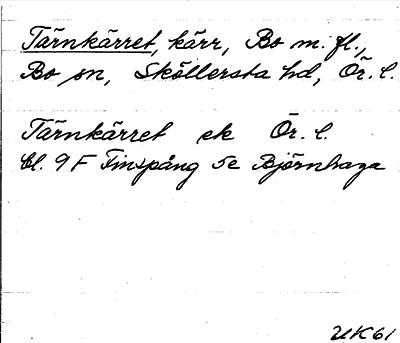 Tärnkärret, kärr, Bo m. fl.,
Bo sn, Sköllersta hd, Ör. l.
Tärnkärret ek Ör. l.
bl. 9F Finspång 5e Björnhaga
UK61